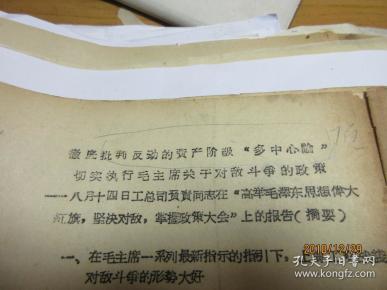 徹底批判反动的資产阶級“多中心論”
切实执行毛主席关于对敌斗爭的政策
——八月十四日工总司負責同志在“高举毛澤东思想偉大
紅旗，坚决对敌，掌握政策大会”上的报告（摘要）
一、在毛主席一系列最新指示的指引下，
对敌斗爭的形势大好
2018/12/29
孔夫子旧书网